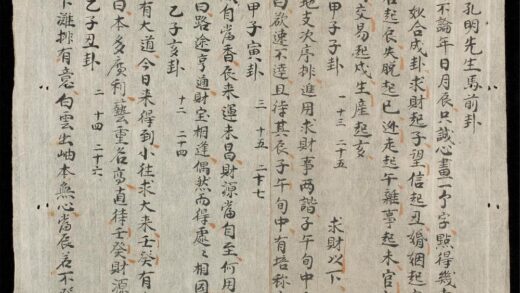 孔明先生馬前卦
不論年日月辰只誠心畫一个字點得幾
合成卦求財起子望信起丑婚姻起
起辰失脫起巳逃走起午雜事起未官
交易起戌生產起亥
地支次序排進用求財事兩諧子午旬中
甲子子卦
一 十三 二十五
求財以下
曰欲速不達且待其辰子午旬中有培称
甲子寅卦
三 十五 二十七
自當香辰來運未昌財源當自至何用
曰路途亨通財宝相逢偶然而得處之相因
乙子亥卦
十二 二十四
有大道今日来得小往求大来壬癸有
曰本多廣利藝重名高直待壬癸財源
乙子丑卦
二 十四 二十六
難排有意白雲出岫本無心當辰若不